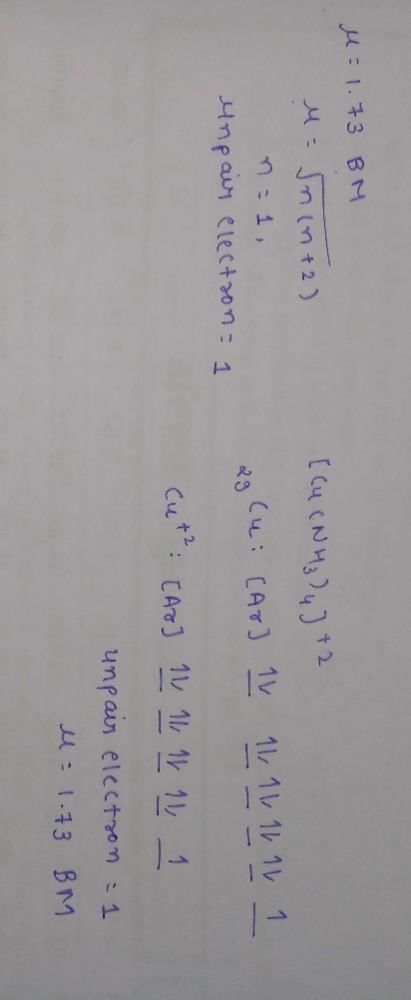 μ = 1.73 BM
μ = √n(n+2)
n = 1,
unpair electron = 1
[Cu(NH₃)₄]⁺²
₂₉Cu : [Ar] 1⇂ 1⇂ 1⇂ 1⇂ 1⇂ 1
Cu⁺² : [Ar] 1⇂ 1⇂ 1⇂ 1⇂ 1
unpair electron = 1
μ = 1.73 BM